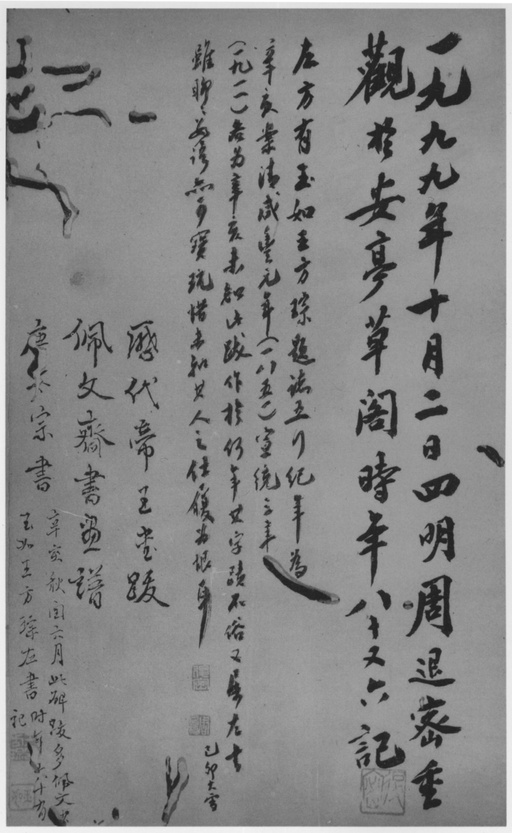 一九九九年十月二日四明周退密重
觀於安亭草閣時年八十又六記
左方有玉如王方琮題端五行紀年為
辛亥案清咸豐元年(一八五一)宣統三年
(一九一一)各為辛亥未知此跋作於何年其字蹟不俗又是左書
雖聊為可寶玩惜未知其人之仕履為恨耳
己卯大雪
歷代帝王書跋
佩文齋書畫譜
唐宗書
辛亥秋閏六月此碑跋多佩文
玉如王方琮左書時年六十
記